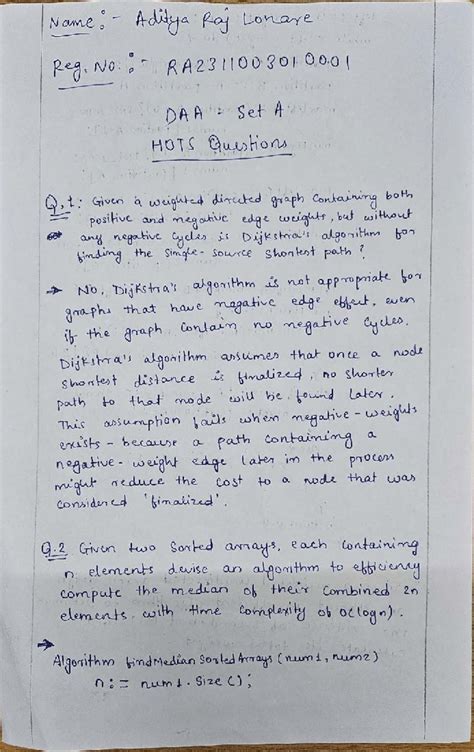 Name:- Aditya Raj Lonare
Reg. No. :- RA2311003010001
DAA - Set A
HOTS Questions
Q.1: Given a weighted directed graph containing both
positive and negative edge weights, but without
any negative cycles is Dijkstra's algorithm for
finding the single-source shortest path?
→ No, Dijkstra's algorithm is not appropriate for
graphs that have nagative edge effect, even
if the graph contain no negative cycles.
Dijkstra's algorithm assumes that once a node
shortest distance is finalized, no shorter
path to that node will be found later.
This assumption fails when negative-weights
exists - because a path containing a
negative-weight edge later in the process
might reduce the cost to a node that was
considered 'finalized'.
Q.2 Given two sorted arrays, each containing
n elements devise an algorithm to efficiency
compute the median of their combined 2n
elements, with time complexity of O(logn).
→
Algorithm findMedianSortedArrays (num1, num2)
n := num1.size();